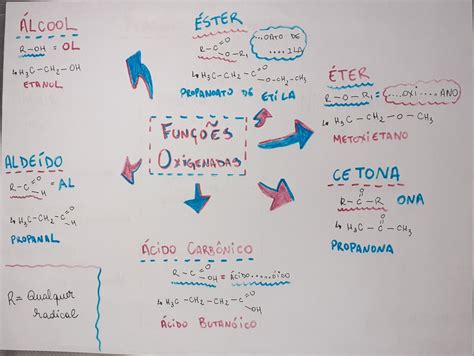 ÁLCOOL
R-OH = OL
↳ H₃C-CH₂-OH
ETANOL
ÉSTER
R-C=O
O-R₁
....OATO DE
.... ILA
↳ H₃C-CH₂-C=O
O-CH₂-CH₃
PROPANOATO DE ETILA
ÉTER
R-O-R₁ = ....OXI....ANO
↳ H₃C-CH₂-O-CH₃
METOXIETANO
FUNÇÕES
OXIGENADAS
ALDEÍDO
R-C=O
H
= AL
↳ H₃C-CH₂-C=O
H
PROPANAL
CETONA
O
R-C-R
ONA
O
↳ H₃C-C-CH₃
PROPANONA
ÁCIDO CARBÔNICO
R-C=O
OH = ÁCIDO.....ÓICO
↳ H₃C-CH₂-CH₂-C=O
OH
ÁCIDO BUTANÓICO
R= Qualquer
radical